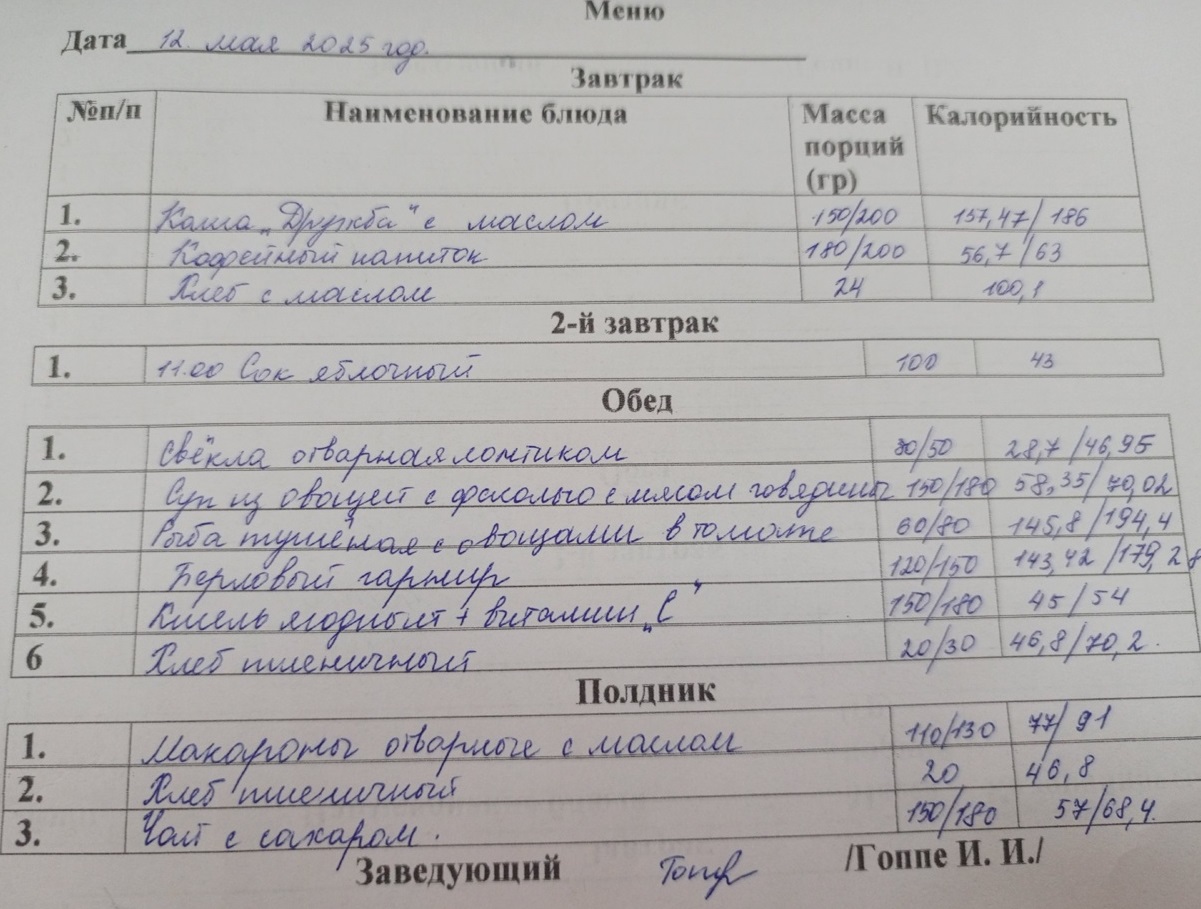 Меню
Дата 12. мая 2025 год.
Завтрак
№п/п Наименование блюда Масса порций (гр) Калорийность
1. Каша „Дружба" с маслом 150/200 157,47/186
2. Кофейный напиток 180/200 56,7/63
3. Хлеб с маслом 24 100,1
2-й завтрак
1. 11.00 Сок яблочный 100 43
Обед
1. Свёкла отварная ломтиком 30/50 28,7/46,95
2. Суп из овощей с фасолью с мясом говядины 150/180 58,35/70,02
3. Рыба тушёная с овощами в томате 60/80 145,8/194,4
4. Перловый гарнир 120/150 143,42/179,28
5. Кисель ягодный + витамин „С" 150/180 45/54
6 Хлеб пшеничный 20/30 46,8/70,2.
Полдник
1. Макароны отварные с маслом 110/130 77/91
2. Хлеб пшеничный 20 46,8
3. Чай с сахаром. 150/180 57/68,4.
Заведующий /Гоппе И. И./